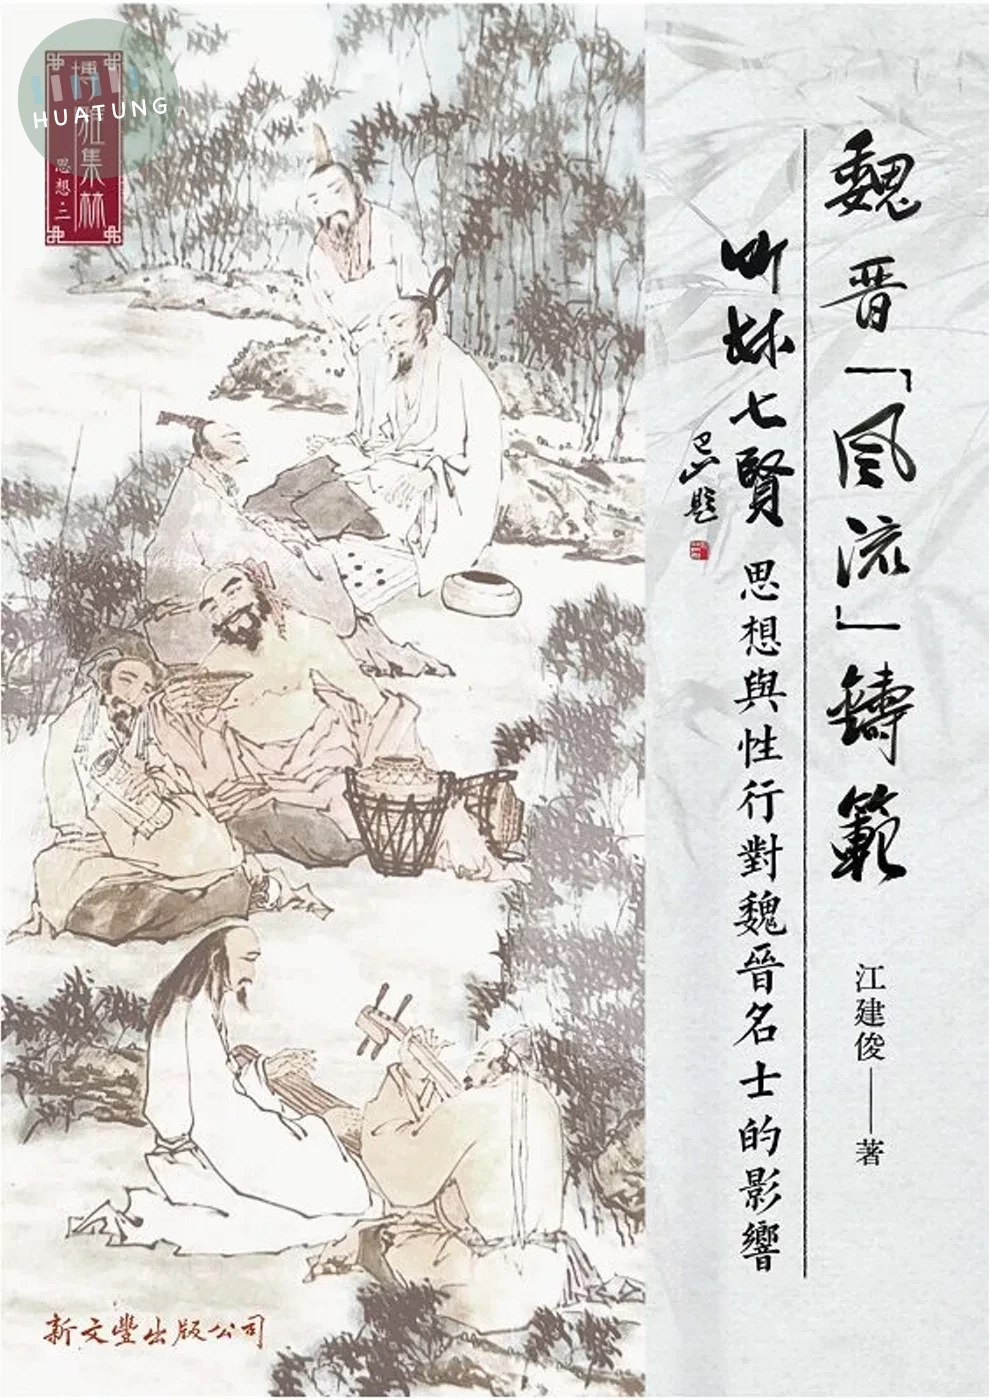 魏晉「風流」鑄範
竹林七賢
思想與性行對魏晉名士的影響
巴山題
江建俊——著
博雅集林
思想·二
HUATUNG
新文豐出版公司